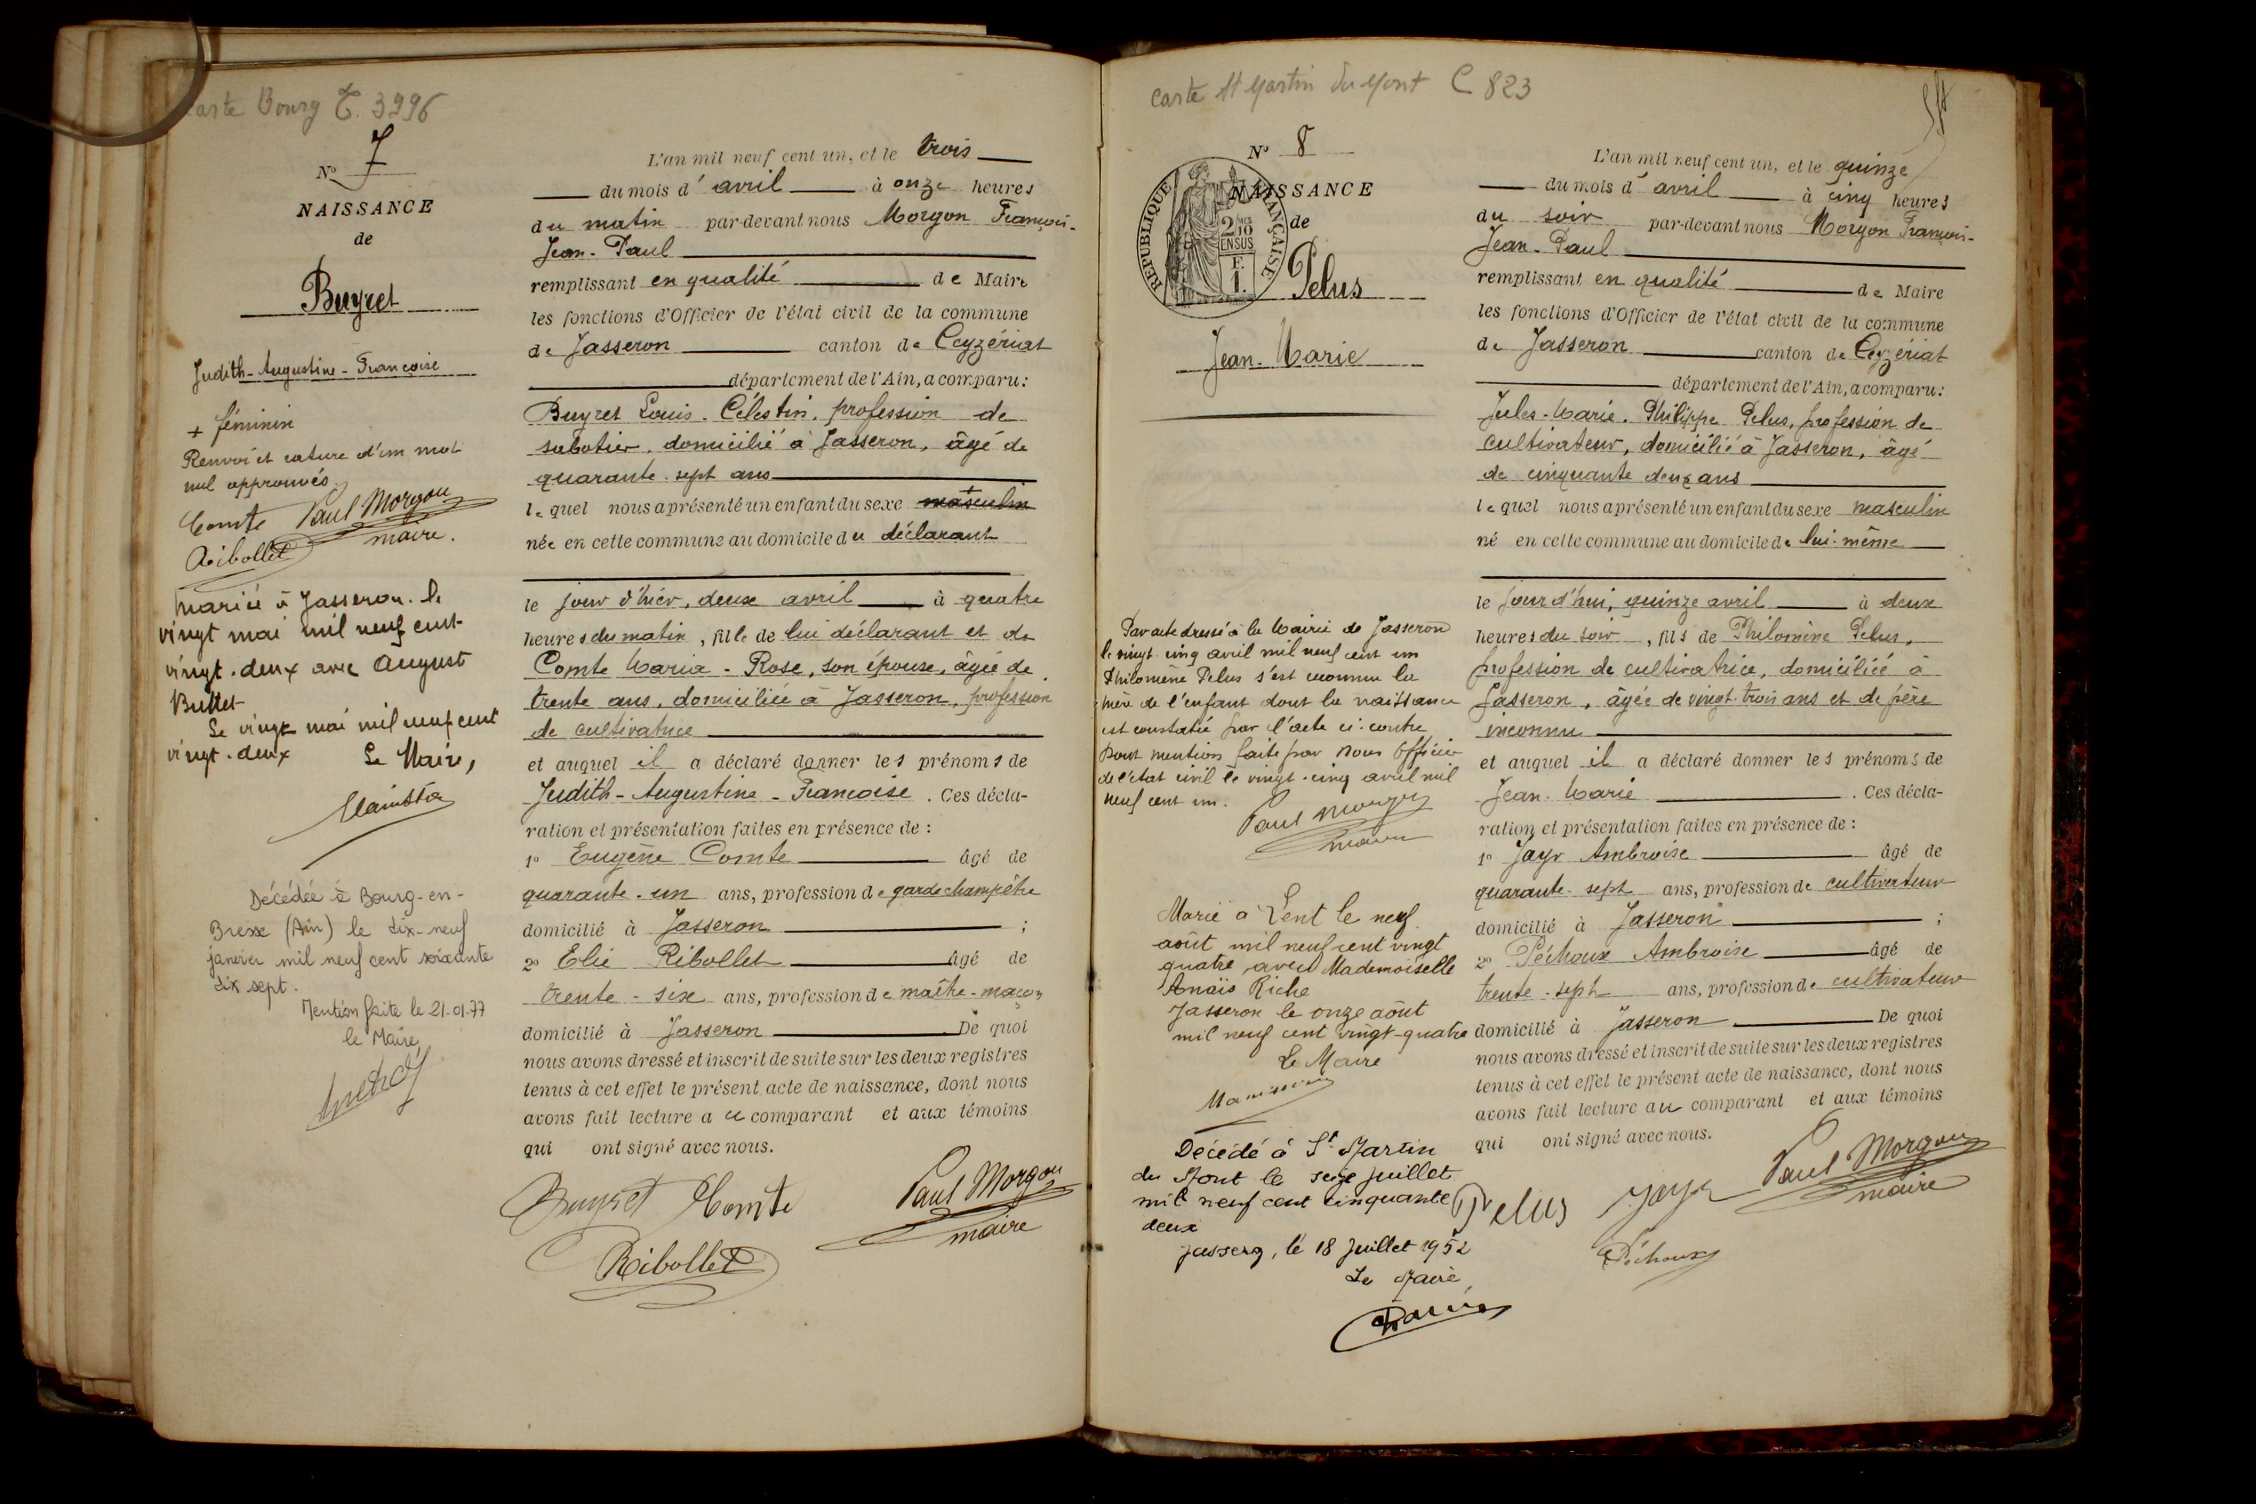 Carte Bourg T. 3996
N° 7
NAISSANCE
de
Buyret
Judith-Augustine-Françoise
+ féminin
Renvoi et rature d'un mot
nul approuvés.
Comte Paul Morgon
Ribollet maire.
Mariée à Jasseron le
vingt mai mil neuf cent
vingt-deux avec August
Buttet
Le vingt mai mil neuf cent
vingt-deux Le Maire,
Décédée à Bourg-en-
Bresse (Ain) le dix-neuf
janvier mil neuf cent soixante
dix sept.
Mention faite le 21-01-77
le Maire
L'an mil neuf cent un, et le trois
du mois d'avril à onze heures
du matin par-devant nous Morgon François-
Jean-Paul
remplissant en qualité de Maire
les fonctions d'Officier de l'état civil de la commune
de Jasseron canton de Ceyzériat
département de l'Ain, a comparu:
Buyret Louis-Célestin, profession de
sabotier, domicilié à Jasseron, âgé de
quarante-sept ans
lequel nous a présenté un enfant du sexe + masculin
née en cette commune au domicile du déclarant
le jour d'hier, deux avril à quatre
heures du matin, fille de lui déclarant et de
Comte Maria-Rose, son épouse, âgée de
trente ans, domiciliée à Jasseron, profession
de cultivatrice
et auquel il a déclaré donner les prénoms de
Judith-Augustine-Françoise. Ces décla-
ration et présentation faites en présence de:
1° Eugène Comte âgé de
quarante-un ans, profession de garde champêtre
domicilié à Jasseron ;
2° Elie Ribollet âgé de
trente-six ans, profession de maître-maçon
domicilié à Jasseron De quoi
nous avons dressé et inscrit de suite sur les deux registres
tenus à cet effet le présent acte de naissance, dont nous
avons fait lecture au comparant et aux témoins
qui ont signé avec nous.
Buyret Comte Paul Morgon
Ribollet maire
Carte St Martin du Mont C 823
N° 8
NAISSANCE
RÉPUBLIQUE FRANÇAISE
2/10 EN SUS
F. 1.
de
Pelus
Jean-Marie
Par acte dressé à la Mairie de Jasseron
le vingt-cinq avril mil neuf cent un
Philomène Pelus s'est reconnue la
mère de l'enfant dont la naissance
est constatée par l'acte ci-contre
Dont mention faite par Nous Officier
de l'état civil le vingt-cinq avril mil
neuf cent un.
Paul Morgon
maire
Marié à Lent le neuf
août mil neuf cent vingt
quatre avec Mademoiselle
Anaïs Riche
Jasseron le onze août
mil neuf cent vingt-quatre
Le Maire
Décédé à St Martin
du Mont le seize juillet
mil neuf cent cinquante
deux
Jasseron, le 18 Juillet 1952
Le Maire
L'an mil neuf cent un, et le quinze
du mois d'avril à cinq heures
du soir par-devant nous Morgon François-
Jean-Paul
remplissant en qualité de Maire
les fonctions d'Officier de l'état civil de la commune
de Jasseron canton de Ceyzériat
département de l'Ain, a comparu:
Jules-Marie-Philippe Pelus, profession de
cultivateur, domicilié à Jasseron, âgé
de cinquante deux ans
lequel nous a présenté un enfant du sexe masculin
né en cette commune au domicile de lui-même
le jour d'hui, quinze avril à deux
heures du soir, fils de Philomène Pelus,
profession de cultivatrice, domiciliée à
Jasseron, âgée de vingt-trois ans et de père
inconnu
et auquel il a déclaré donner les prénoms de
Jean-Marie. Ces décla-
ration et présentation faites en présence de:
1° Jayr Ambroise âgé de
quarante-sept ans, profession de cultivateur
domicilié à Jasseron ;
2° Péchoux Ambroise âgé de
trente-sept ans, profession de cultivateur
domicilié à Jasseron De quoi
nous avons dressé et inscrit de suite sur les deux registres
tenus à cet effet le présent acte de naissance, dont nous
avons fait lecture au comparant et aux témoins
qui ont signé avec nous.
Pelus Jayr Paul Morgon
Péchoux maire